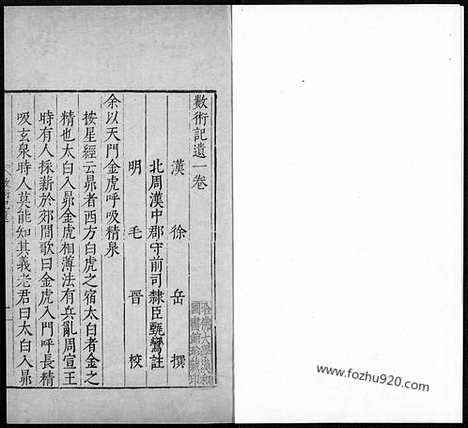 數術記遺一卷
漢 徐 岳 撰
北周漢中郡守前司隸臣甄鸞註
明 毛 晉 校
余以天門金虎呼吸精泉
按星經云昴者西方白虎之宿太白者金之
精也太白入昴金虎相薄法有兵亂周宣王
時有人採薪於郊間歌曰金虎入門呼長精
吸玄泉時人莫能知其義老君曰太白入昴
www.fozhu920.com